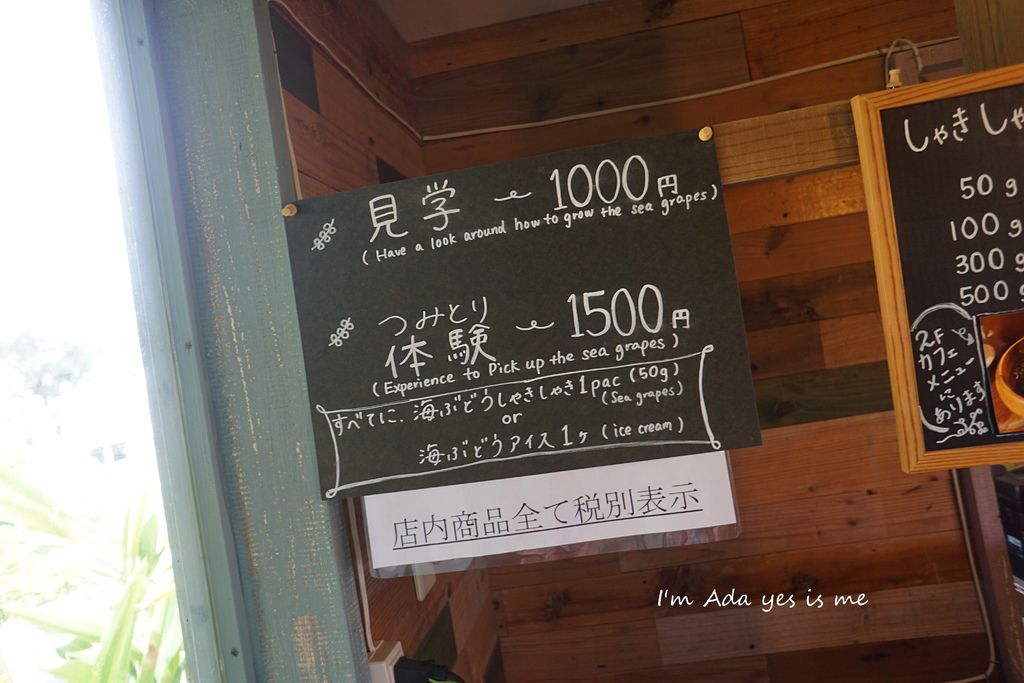 見学 〜 1000円
(Have a look around how to grow the sea grapes)
つみとり
体験 〜 1500円
(Experience to Pick up the sea grapes)
すべてに、海ぶどうしゃきしゃき1pac (50g)
(Sea grapes)
or
海ぶどうアイス1ヶ (ice cream)
店内商品全て税別表示
しゃきしゃ
50g
100g
300g
500g
2F
カフェ
メニュー
に
あります
I'm Ada yes is me